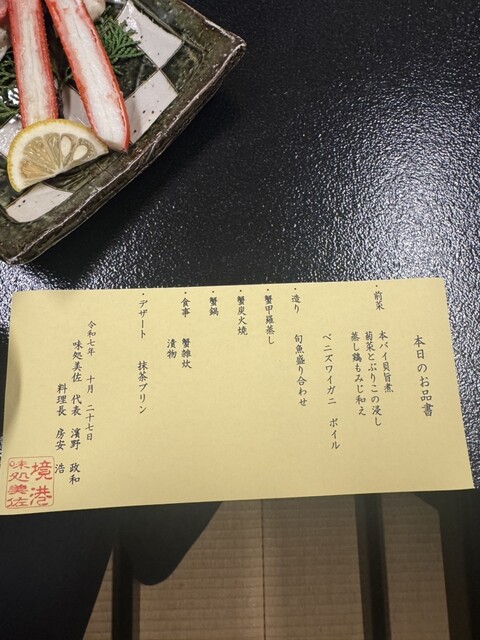 本日のお品書
・前菜 本バイ貝旨煮
菊菜とぶりこの浸し
蒸し鶏もみじ和え
ベニズワイガニ ボイル
・造り 旬魚盛り合わせ
・蟹甲羅蒸し
・蟹炭火焼
・蟹鍋
・食事 蟹雑炊
漬物
・デザート 抹茶プリン
令和七年 十月 二十七日
味処美佐 代表 濱野 政和
料理長 房安 浩
境港
味処美佐